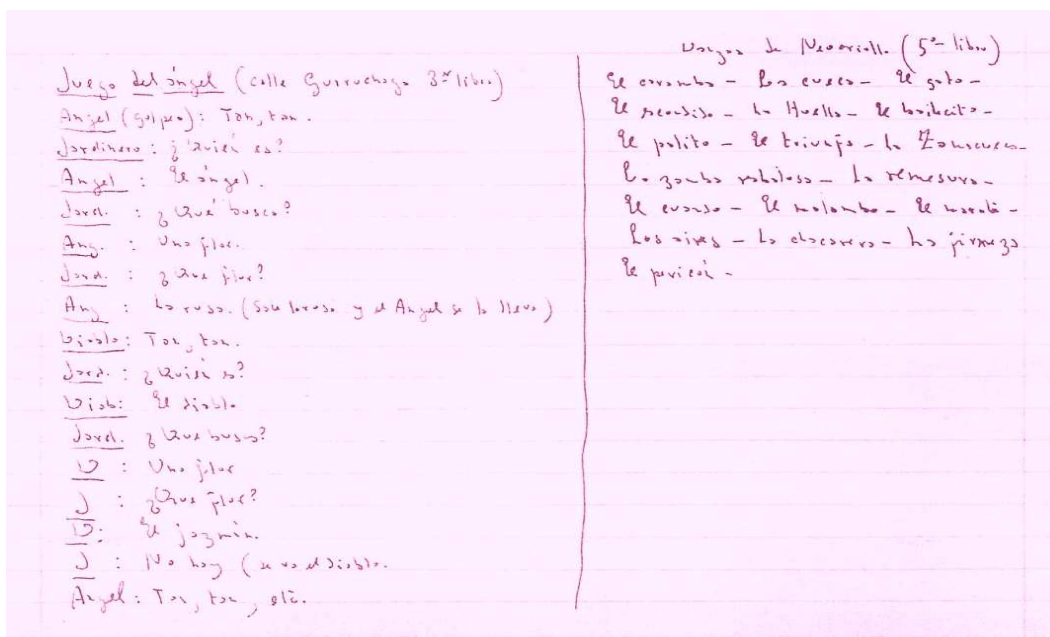 Juego del ángel (calle Gurruchaga 3er libro)
Angel (golpea): Tan, tan.
Jardinero: ¿Quién es?
Angel : El ángel.
Jard. : ¿Qué busca?
Ang. : Una flor.
Jard. : ¿Que flor?
Ang : La rosa. (Sale la rosa y el Angel se la lleva)
Diablo: Tan, tan.
Jard. : ¿Quién es?
Diab: El diablo
Jard. ¿Que busca?
D : Una flor
J : ¿Que flor?
D: El jazmín.
J : No hay (se va el diablo.
Angel: Tan, tan, etc.
Danzas de (5º libro)
El caramba – La cueca – El gato –
El escondido – La Huella – El bailecito –
El palito – El triunfo – La Zamacueca –
La zamba – La remesura –
El cuando – El malambo – El marote –
Los aires – La chacarera – La firmeza
El pericón –